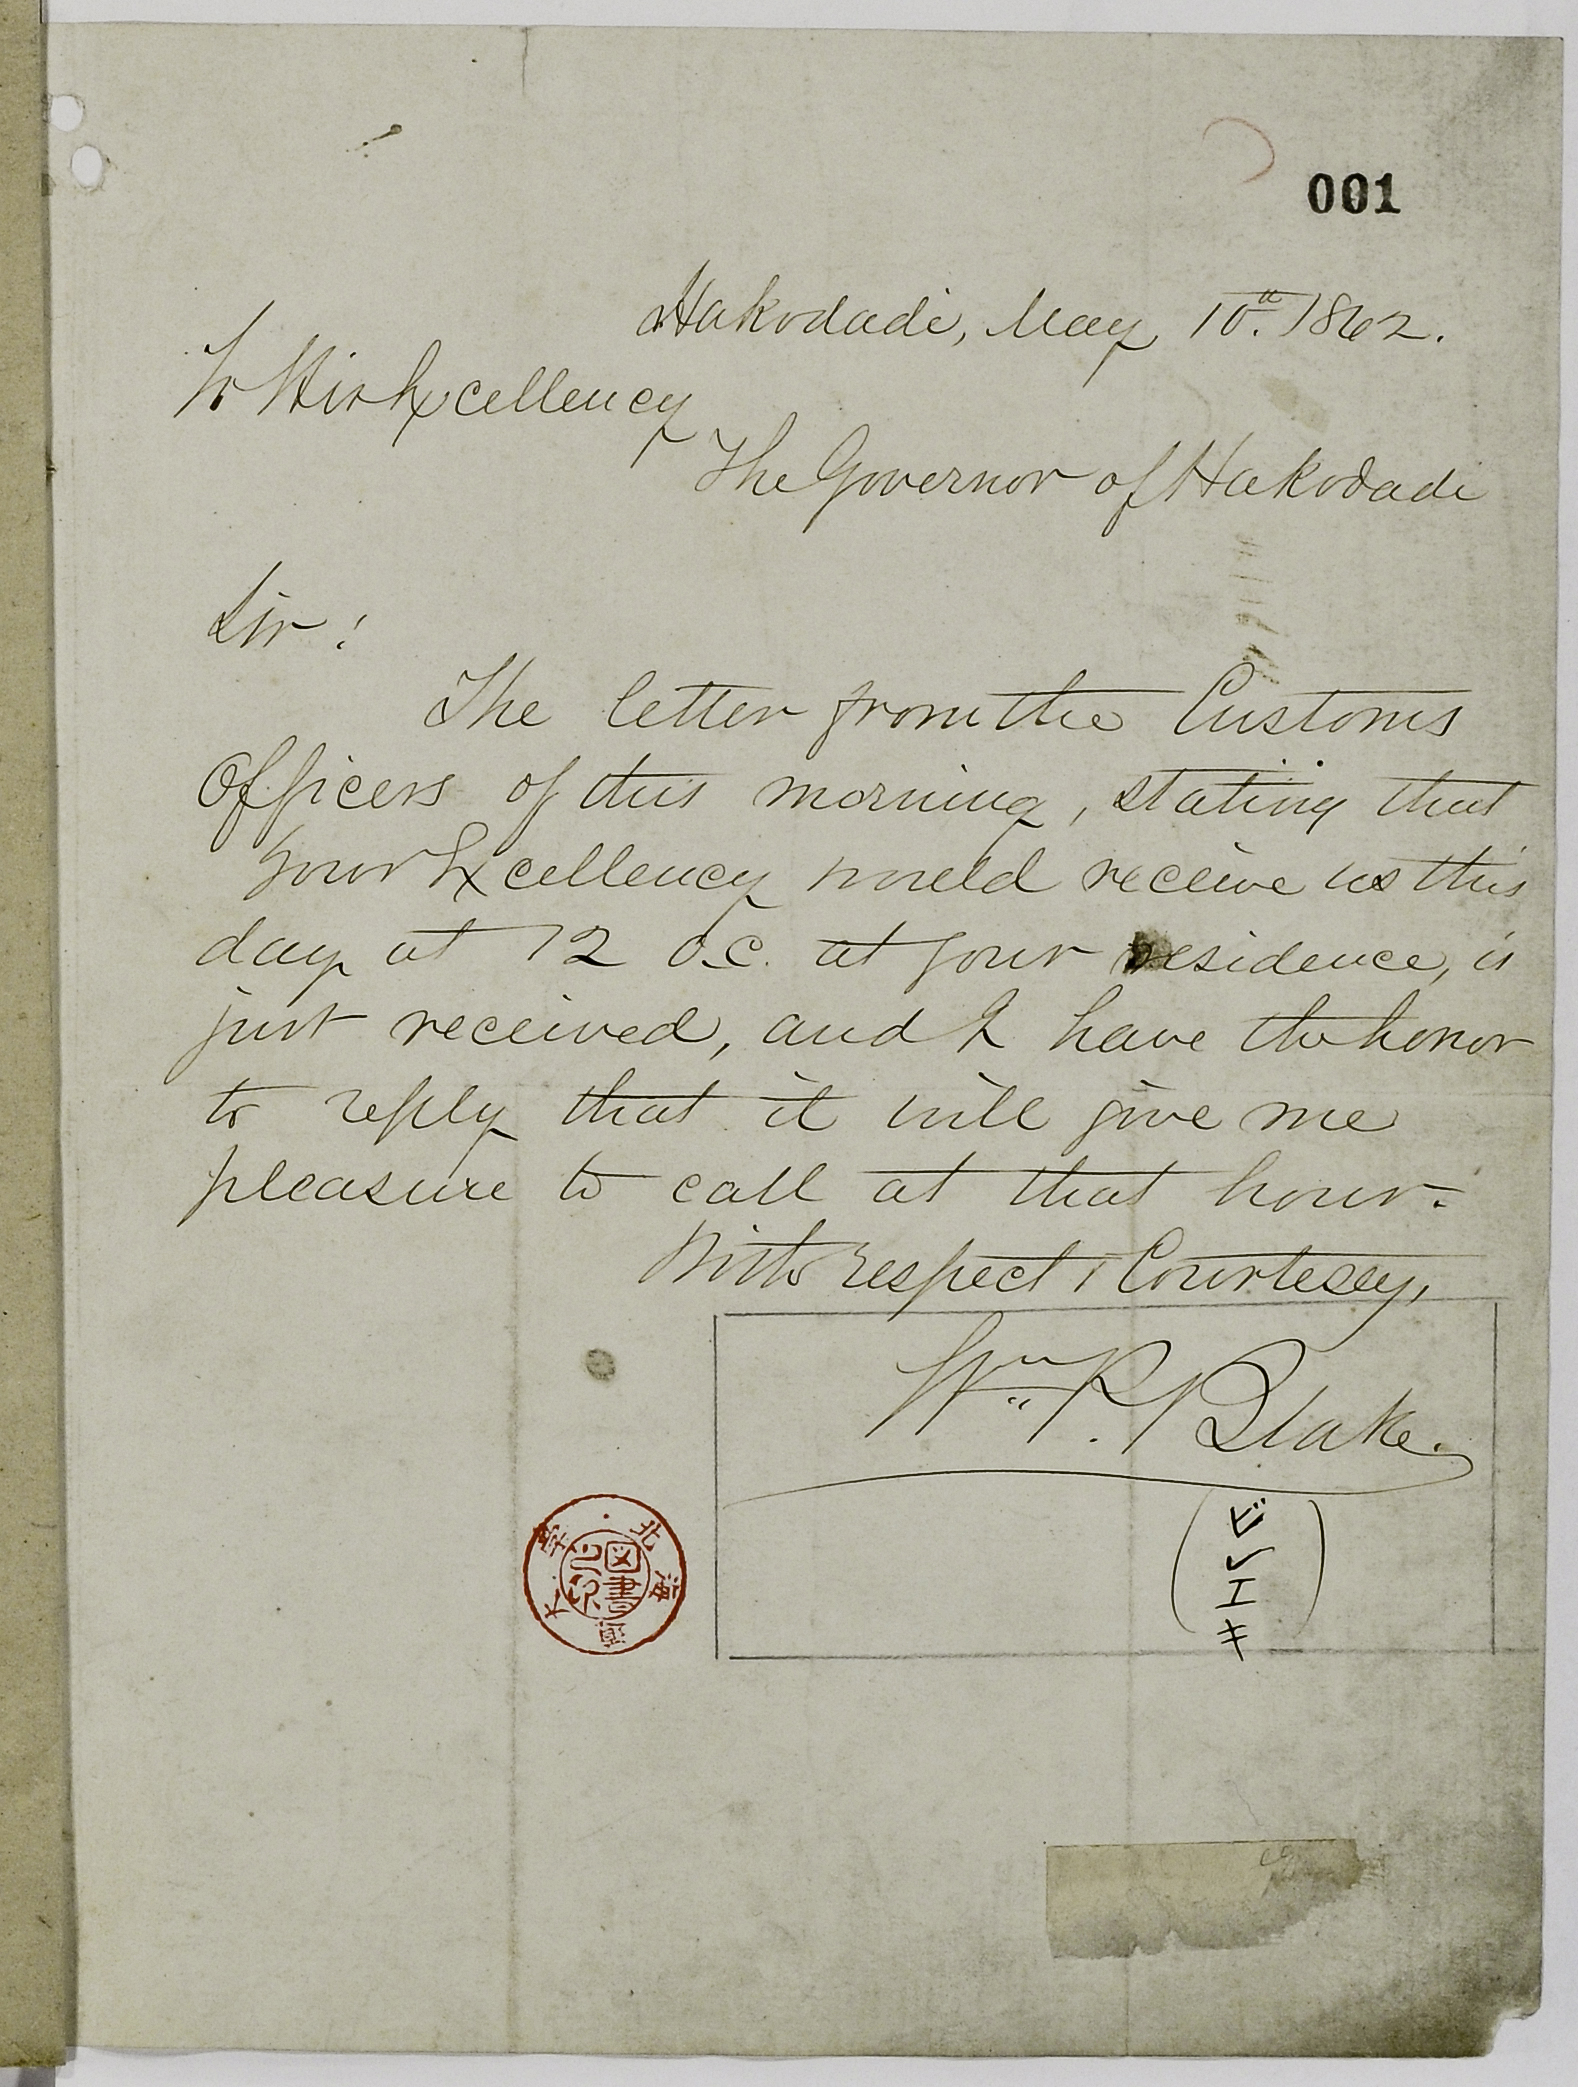 001
Hakodadi, May 10th. 1862.
To His Excellency
The Governor of Hakodadi
Sir:
The letter from the Customs
Officers of this morning, stating that
Your Excellency would receive us this
day at 12 O.C. at your residence, is
just received, and I have the honor
to reply that it will give me
pleasure to call at that hour.
With respect & Courtesey,
Wm. P. Blake.
(ビレエキ)
北海道大学
図書